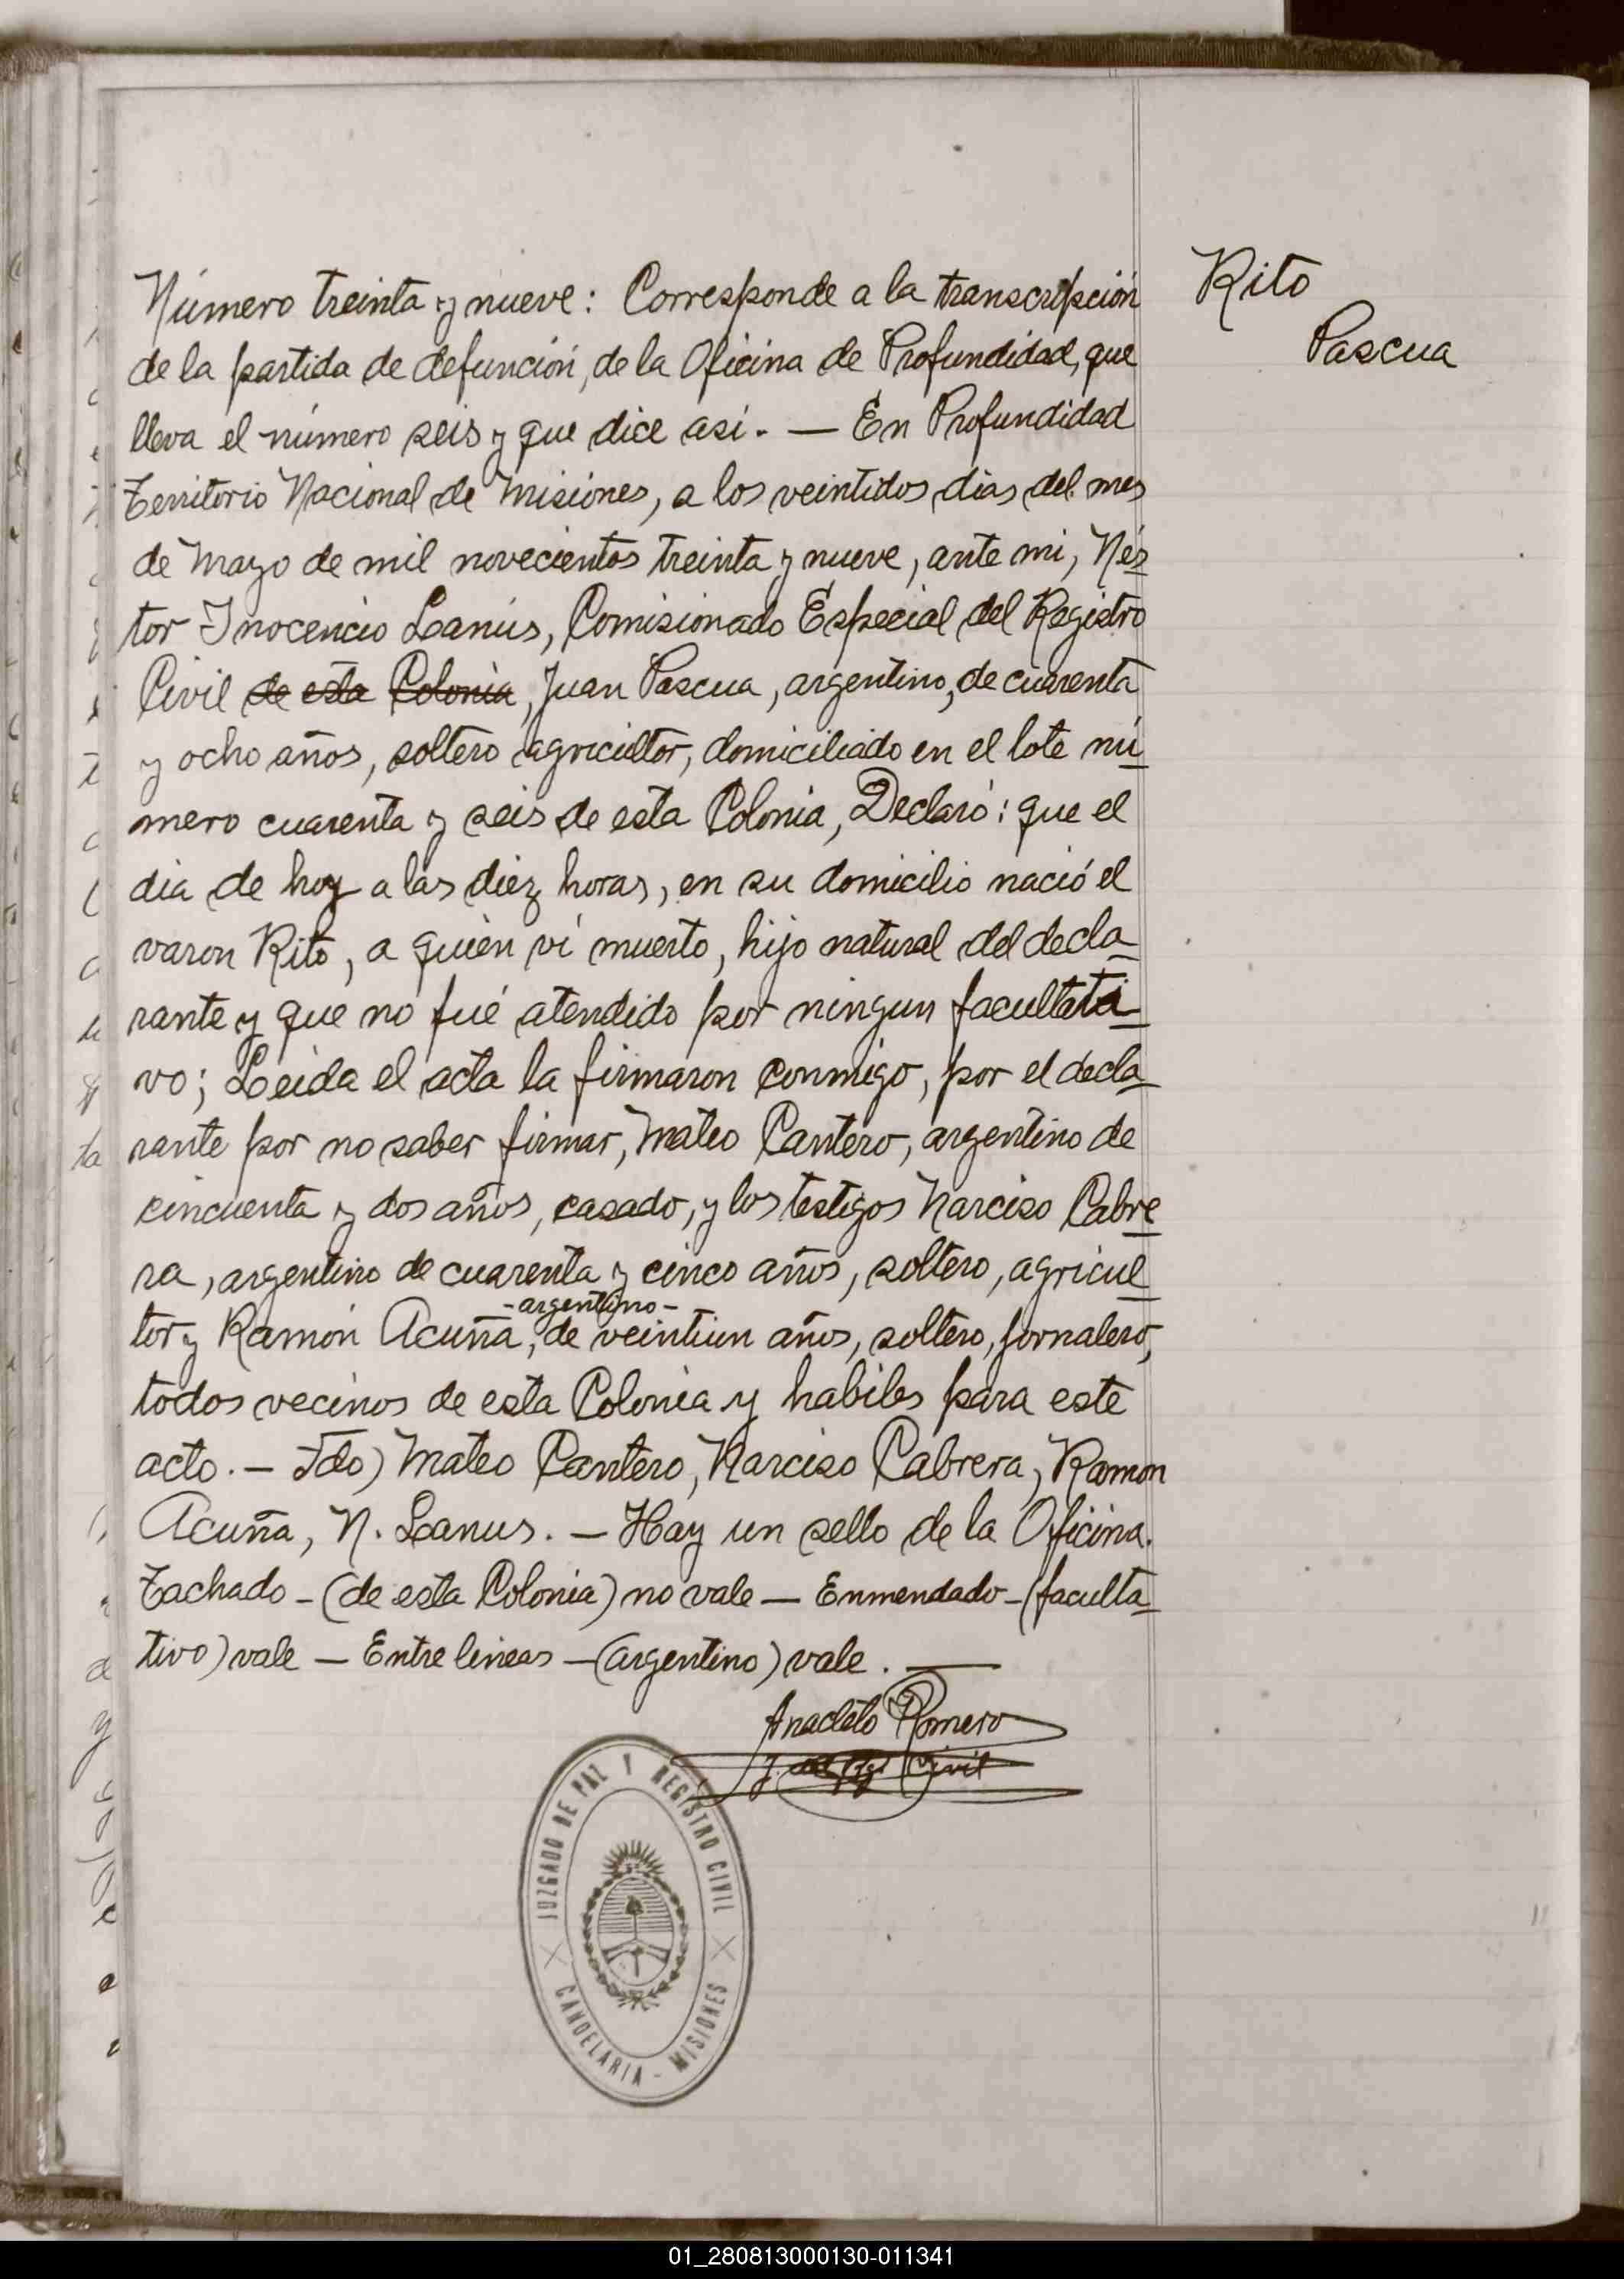 Rito
Pascua
Número treinta y nueve: Corresponde a la transcripción
de la partida de defunción, de la Oficina de Profundidad, que
lleva el número seis y que dice asi. — En Profundidad
Territorio Nacional de Misiones, a los veintidos dias del mes
de Mayo de mil novecientos treinta y nueve, ante mi, Nés
tor Inocencio Lanús, Comisionado Especial del Registro
Civil de esta Colonia, Juan Pascua, argentino, de cuarenta
y ocho años, soltero agricultor, domiciliado en el lote nú
mero cuarenta y seis de esta Colonia, Declaró: que el
dia de hoy a las diez horas, en su domicilio nació el
varon Rito, a quien ví muerto, hijo natural del decla
rante y que no fué atendido por ningun facultati
vo; Leida el acta la firmaron conmigo, por el decla
rante por no saber firmar, Mateo Cantero, argentino de
cincuenta y dos años, casado, y los testigos Narciso Cabre
ra, argentino de cuarenta y cinco años, soltero, agricul
-argentino-
tor y Ramón Acuña, de veintiun años, soltero, jornalero,
todos vecinos de esta Colonia y habiles para este
acto. — Fdo) Mateo Cantero, Narciso Cabrera, Ramon
Acuña, N. Lanus. — Hay un sello de la Oficina.
Tachado - (de esta Colonia) no vale — Enmendado - (faculta
tivo) vale — Entre lineas - (argentino) vale. —
Anacleto Romero
Civil
JUZGADO DE PAZ Y REGISTRO CIVIL
CANDELARIA - MISIONES
01_280813000130-011341